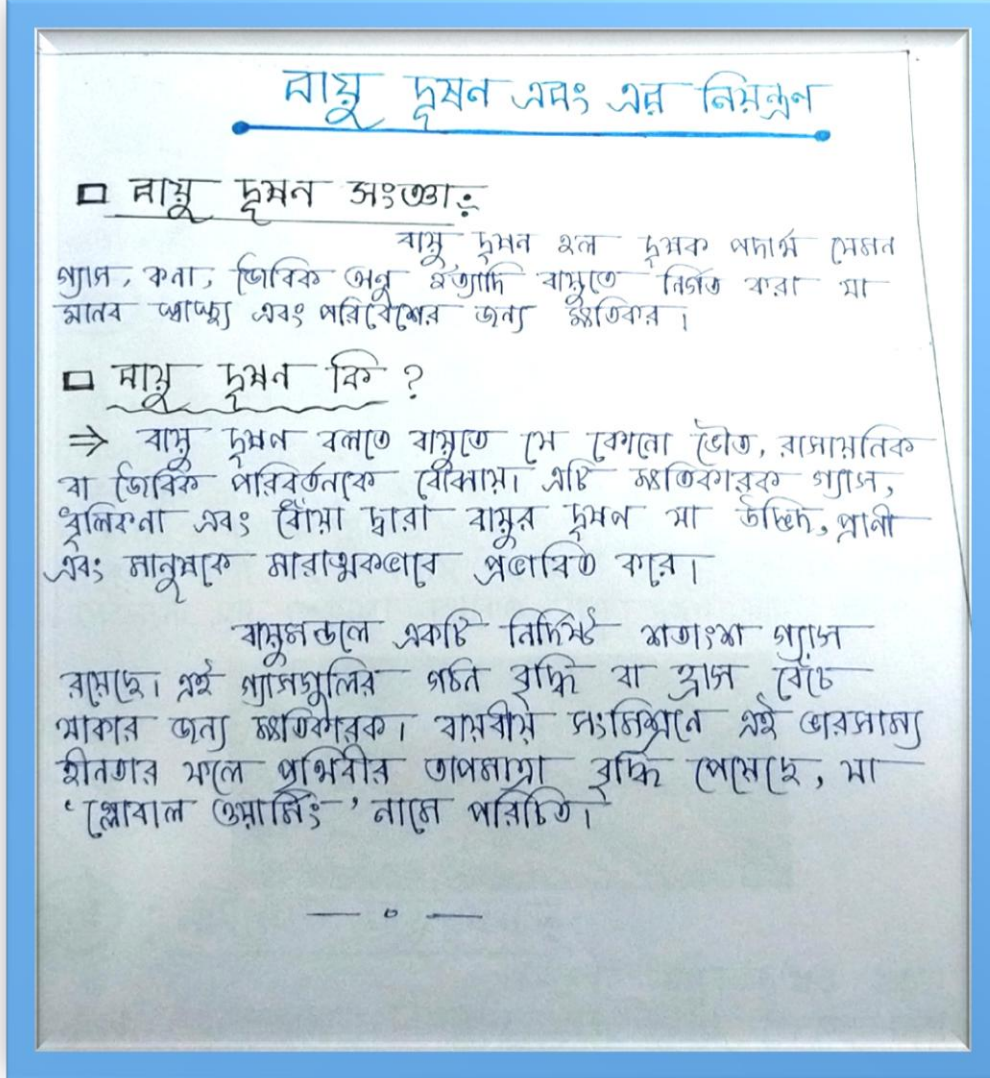 বায়ু দূষন এবং এর নিয়ন্ত্রন
বায়ু দূষন সংজ্ঞা:
বায়ু দূষন হল দূষক পদার্থ যেমন
গ্যাস, কনা, জৈবিক অনু ইত্যাদি বায়ুতে নির্গত করা যা
মানব স্বাস্থ্য এবং পরিবেশের জন্য ক্ষতিকর।
বায়ু দূষন কি ?
⇒ বায়ু দূষন বলতে বায়ুতে যে কোনো ভৌত, রাসায়নিক
বা জৈবিক পরিবর্তনকে বোঝায়। এটি ক্ষতিকারক গ্যাস,
ধূলিকনা এবং ধোঁয়া দ্বারা বায়ুর দূষন যা উদ্ভিদ, প্রাণী
এবং মানুষকে মারাত্মকভাবে প্রভাবিত করে।
বায়ুমন্ডলে একটি নির্দিষ্ট শতাংশ গ্যাস
রয়েছে। এই গ্যাসগুলির গঠন বৃদ্ধি বা হ্রাস বেঁচে
থাকার জন্য ক্ষতিকারক। বায়বীয় সংমিশ্রনে এই ভারসাম্য
হীনতার ফলে পৃথিবীর তাপমাত্রা বৃদ্ধি পেয়েছে, যা
‘গ্লোবাল ওয়ার্মিং’ নামে পরিচিত।